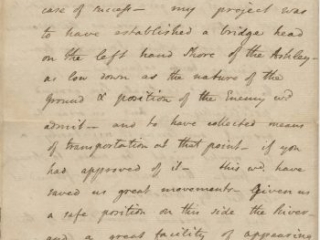 case of success— my project was
to have established a bridge head
on the left hand Shore of the Ashley—
as low down as the nature of the
Ground & position of the Enemy wd
admit— and to have collected means
of transportation at that point— if you
had approved of it— this wd have
saved us great movements— given us
a safe position on this side the River
and a great facility of appearing